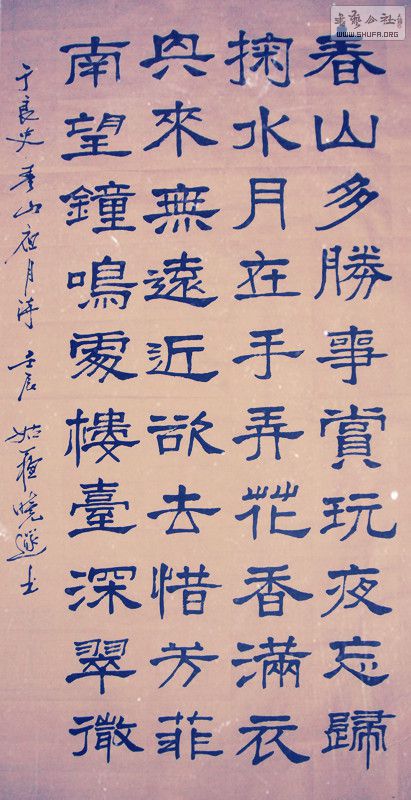 春山多勝事賞玩夜忘歸
掬水月在手弄花香滿衣
興來無遠近欲去惜芳菲
南望鐘鳴處樓臺深翠微
于良史春山夜月诗 壬辰 姑 曉 书
書藝公社
WWW.SHUFA.ORG